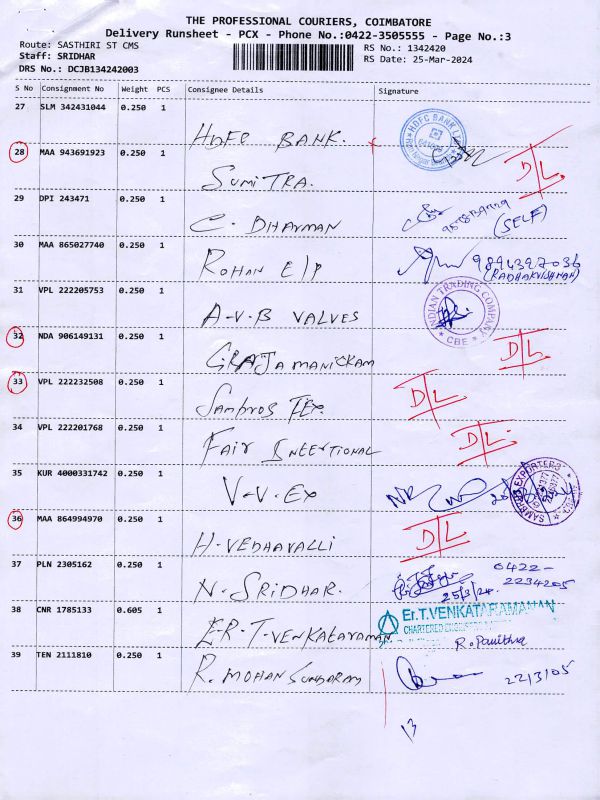 THE PROFESSIONAL COURIERS, COIMBATORE
Delivery Runsheet - PCX - Phone No.:0422-3505555 - Page No.:3
Route: SASTHIRI ST CMS
RS No.: 1342420
Staff: SRIDHAR
RS Date: 25-Mar-2024
DRS No.: DCJB134242003
S No Consignment No Weight PCS Consignee Details Signature
27 SLM 342431044 0.250 1 HDFC BANK. HDFC BANK
28 MAA 943691923 0.250 1 SUMITRA. D/L
29 DPI 243471 0.250 1 C. DHARMAN (SELF)
30 MAA 865027740 0.250 1 ROHAN E/P 9894397036
(RADHAKRISHNAN)
31 VPL 222205753 0.250 1 A-V-B VALVES INDIAN TRADING COMPANY CBE
32 NDA 906149131 0.250 1 G.RAJAMANICKAM D/L
33 VPL 222232508 0.250 1 Sambros TEX. D/L
34 VPL 222201768 0.250 1 FAIR INTERTIONAL D/L.
35 KUR 4000331742 0.250 1 V-V-EX SAMBROS EXPORTERS
36 MAA 864994970 0.250 1 H.VEDHAVALLI D/L
37 PLN 2305162 0.250 1 N.SRIDHAR. 25/3/24 0422-
2234205
38 CNR 1785133 0.605 1 E-R-T-VENKATARAMAN Er.T.VENKATARAMANAN
CHARTERED ENGINEER
R. Pavithra
39 TEN 2111810 0.250 1 R. MOHAN SUNDARAM 22/3/05
13